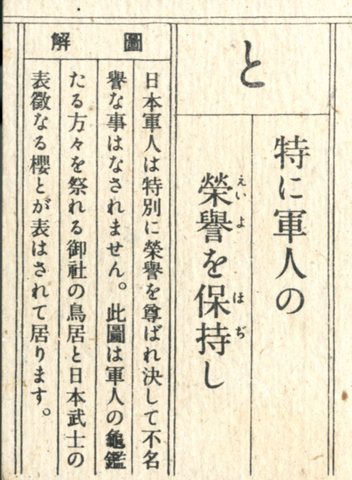 と
特に軍人の
榮譽を保持し
えいよ ほぢ
圖解
日本軍人は特別に榮譽を尊ばれ決して不名
譽な事はなされません。此圖は軍人の龜鑑
たる方々を祭れる御社の鳥居と日本武士の
表徵なる櫻とが表はされて居ります。